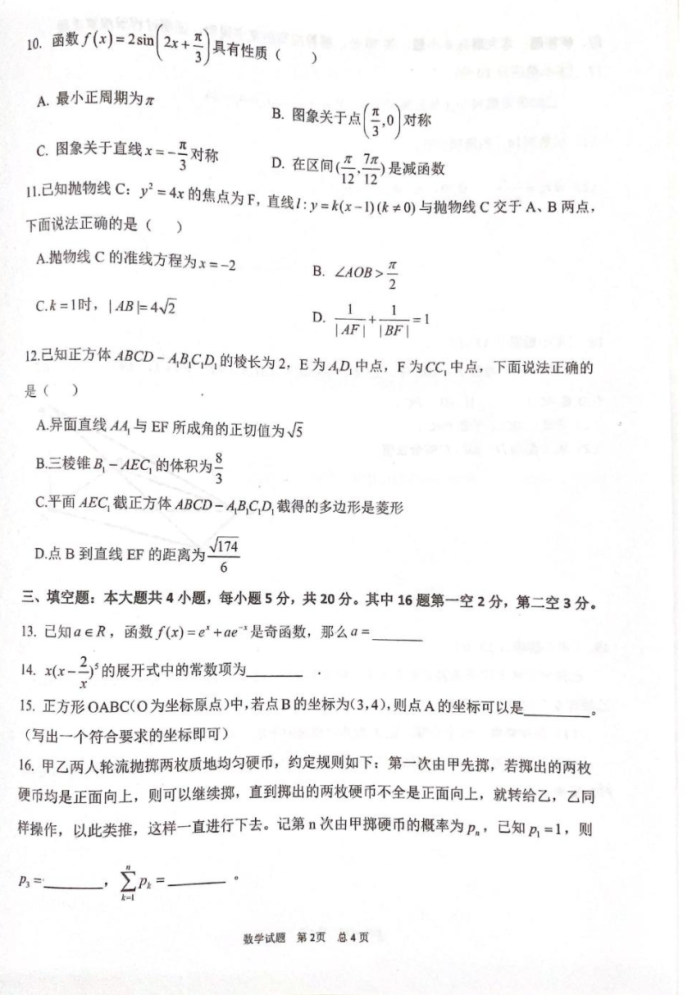 10. 函数 f(x)=2sin(2x+π/3)具有性质（ ）
A. 最小正周期为π
B. 图象关于点(π/3,0)对称
C. 图象关于直线 x=-π/3 对称
D. 在区间(π/12,7π/12)是减函数
11.已知抛物线 C：y²=4x 的焦点为 F，直线 l:y=k(x-1)(k≠0) 与抛物线 C 交于 A、B 两点，
下面说法正确的是（ ）
A.抛物线 C 的准线方程为 x=-2
B. ∠AOB>π/2
C.k=1时，|AB|=4√2
D. 1/|AF|+1/|BF|=1
12.已知正方体 ABCD-A₁B₁C₁D₁的棱长为 2，E 为 A₁D₁ 中点，F 为CC₁ 中点，下面说法正确的
是（ ）
A.异面直线 AA₁ 与 EF 所成角的正切值为√5
B.三棱锥 B₁-AEC₁ 的体积为8/3
C.平面 AEC₁ 截正方体 ABCD-A₁B₁C₁D₁截得的多边形是菱形
D.点 B 到直线 EF 的距离为√174/6
三、填空题：本大题共 4 小题，每小题 5 分，共 20 分。其中 16 题第一空 2 分，第二空 3 分。
13. 已知 a∈R，函数 f(x)=eˣ+ae⁻ˣ是奇函数，那么 a=______
14. x(x-2/x)⁵的展开式中的常数项为______.
15. 正方形 OABC(O 为坐标原点)中,若点 B 的坐标为(3,4),则点 A 的坐标可以是______。
（写出一个符合要求的坐标即可）
16. 甲乙两人轮流抛掷两枚质地均匀硬币，约定规则如下：第一次由甲先掷，若掷出的两枚
硬币均是正面向上，则可以继续掷，直到掷出的两枚硬币不全是正面向上，就转给乙，乙同
样操作，以此类推，这样一直进行下去。记第 n 次由甲掷硬币的概率为 pₙ，已知 p₁=1，则
p₃=______，∑ₖ₌₁ⁿ pₖ=______。
数学试题 第 2页 总 4 页